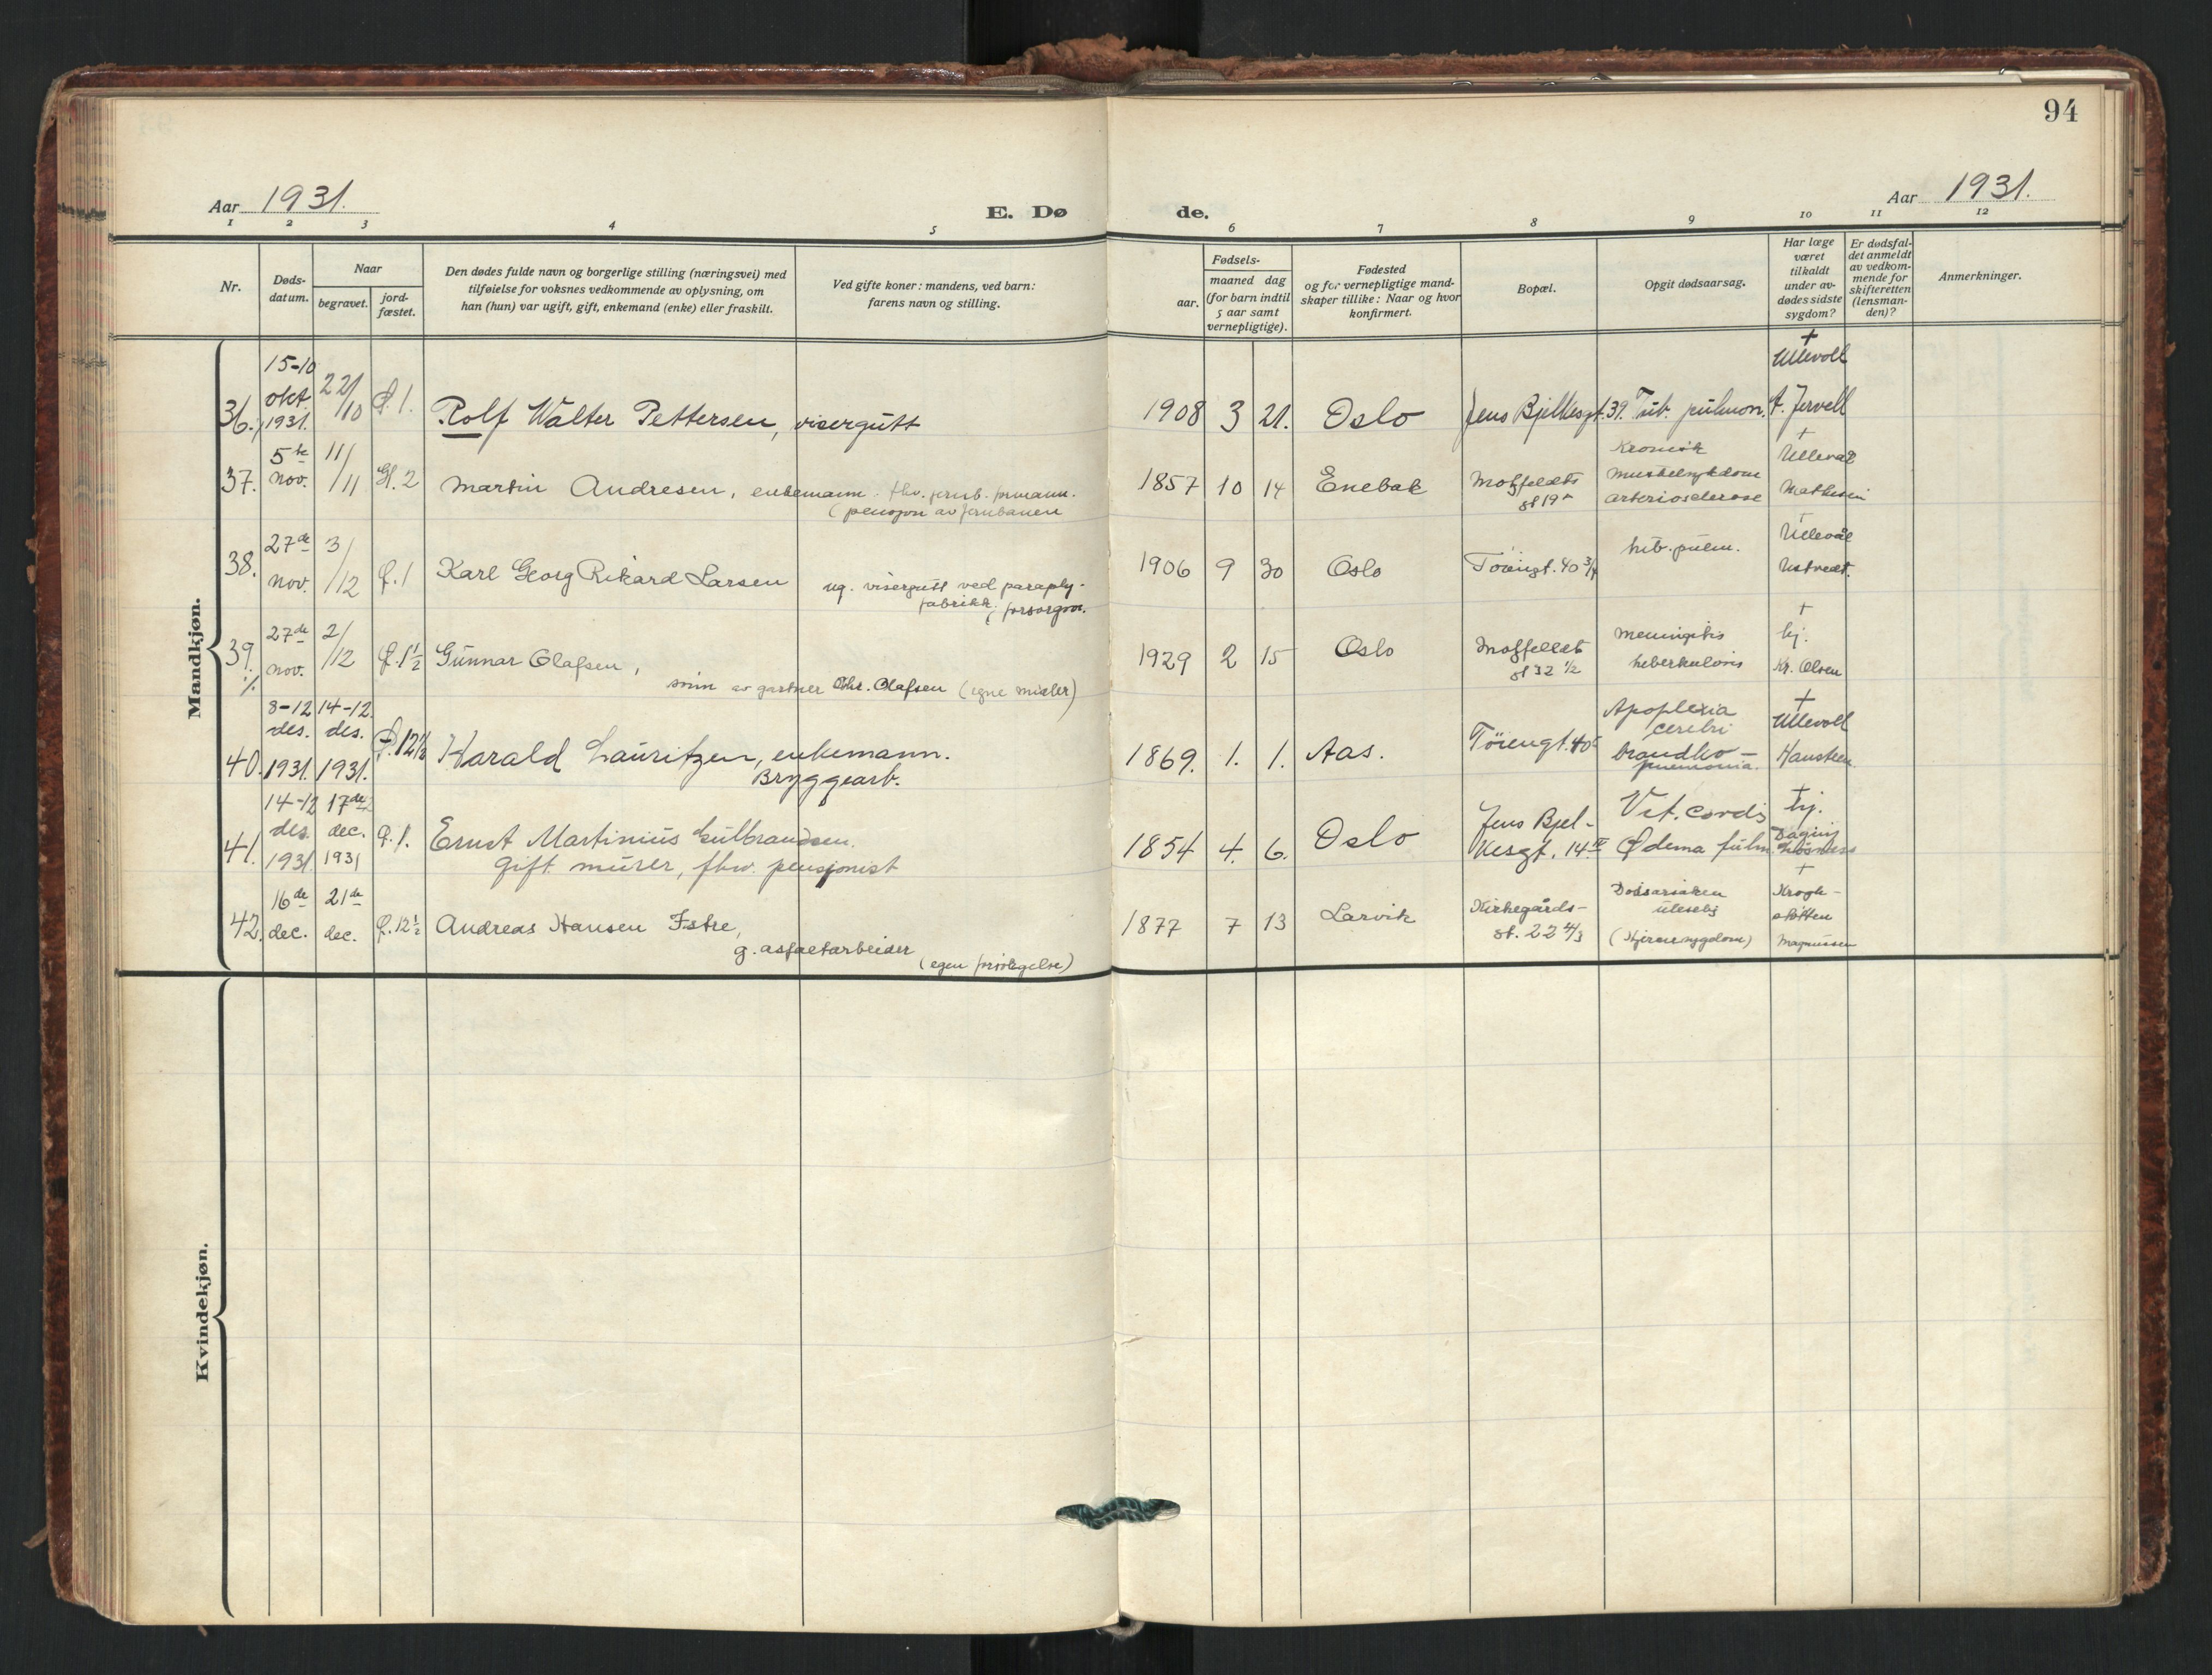 94
Aar 1931.
E. Dø
de.
Aar 1931.
1 2 3 4 5 6 7 8 9 10 11 12
Nr.
Døds-
datum.
Naar
begravet.
jord-
fæstet.
Den dødes fulde navn og borgerlige stilling (næringsvei) med
tilføielse for voksnes vedkommende av oplysning, om
han (hun) var ugift, gift, enkemand (enke) eller fraskilt.
Ved gifte koner: mandens, ved barn:
farens navn og stilling.
Fødsels-
aar.
maaned dag
(for barn indtil
5 aar samt
vernepligtige).
Fødested
og for vernepligtige mand-
skaper tillike: Naar og hvor
konfirmert.
Bopæl.
Opgit dødsaarsag.
Har læge
været
tilkaldt
under av-
dødes sidste
sygdom?
Er dødsfal-
det anmeldt
av vedkom-
mende for
skifteretten
(lensman-
den)?
Anmerkninger.
Mandkjøn.
36.
15-10
okt.
1931.
22/
/10
Rolf Walter Pettersen, visergutt
1908 3 21. Oslo
Jens Bjelkesgt. 39.
Tub. pulmon.
†
Ullevoll
A. Jervell
37.
5te
nov.
11/
/11
Martin Andresen, enkemann. fhv. jernb. formann.
(pensjon av jernbanen
1857 10 14 Enebak
gt 19
Kronisk
muskelsykdom
arteriosclerose
†
Ullevål
Mathesen
38.
27de
nov.
3/
/12
Karl Georg Rikard Larsen
ug. visergutt ved paraply-
fabrikk,
1906 9 30 Oslo
Tøiengt. 40 3/4
tub. pulm.
†
Ullevål
Ustvedt.
39.
27de
nov.
2/
/12
Gunnar Olafsen,
sønn av gartner Chr. Olafsen (egne midler)
1929 2 15 Oslo
gt 32 1/2
meningitis
tuberkulosis
†
hj.
Kr. Olsen
40.
8-12
des.
1931.
14-12
des.
1931.
12½
Harald Lauritzen, enkemann.
Bryggearb.
1869. 1. 1. Aas.
Tøiengt. 40
Apoplexia
cerebri
broncho-
pneumonia.
†
Ullevoll
Hansteen.
41.
14-12
des.
1931.
17de
dec.
1931
Ernst Martinius Gulbrandsen.
gift murer, fhv. pensjonist
1854 4. 6. Oslo
Jens Bjel-
kesgt. 14 IV
Vit. cordis
Ødema pulm.
† hj.
42.
16de
dec.
21de
dec.
12½
Andreas Hansen Istre,
g. asfaltarbeider
(egen forsørgelse)
1877 7 13 Larvik
Kirkegårds-
gt. 22 4/3
Dødsårsaken
uleselig
(Hjernesygdom)
†
Krogh-
støtten
Magnussen
Kvindekjøn.